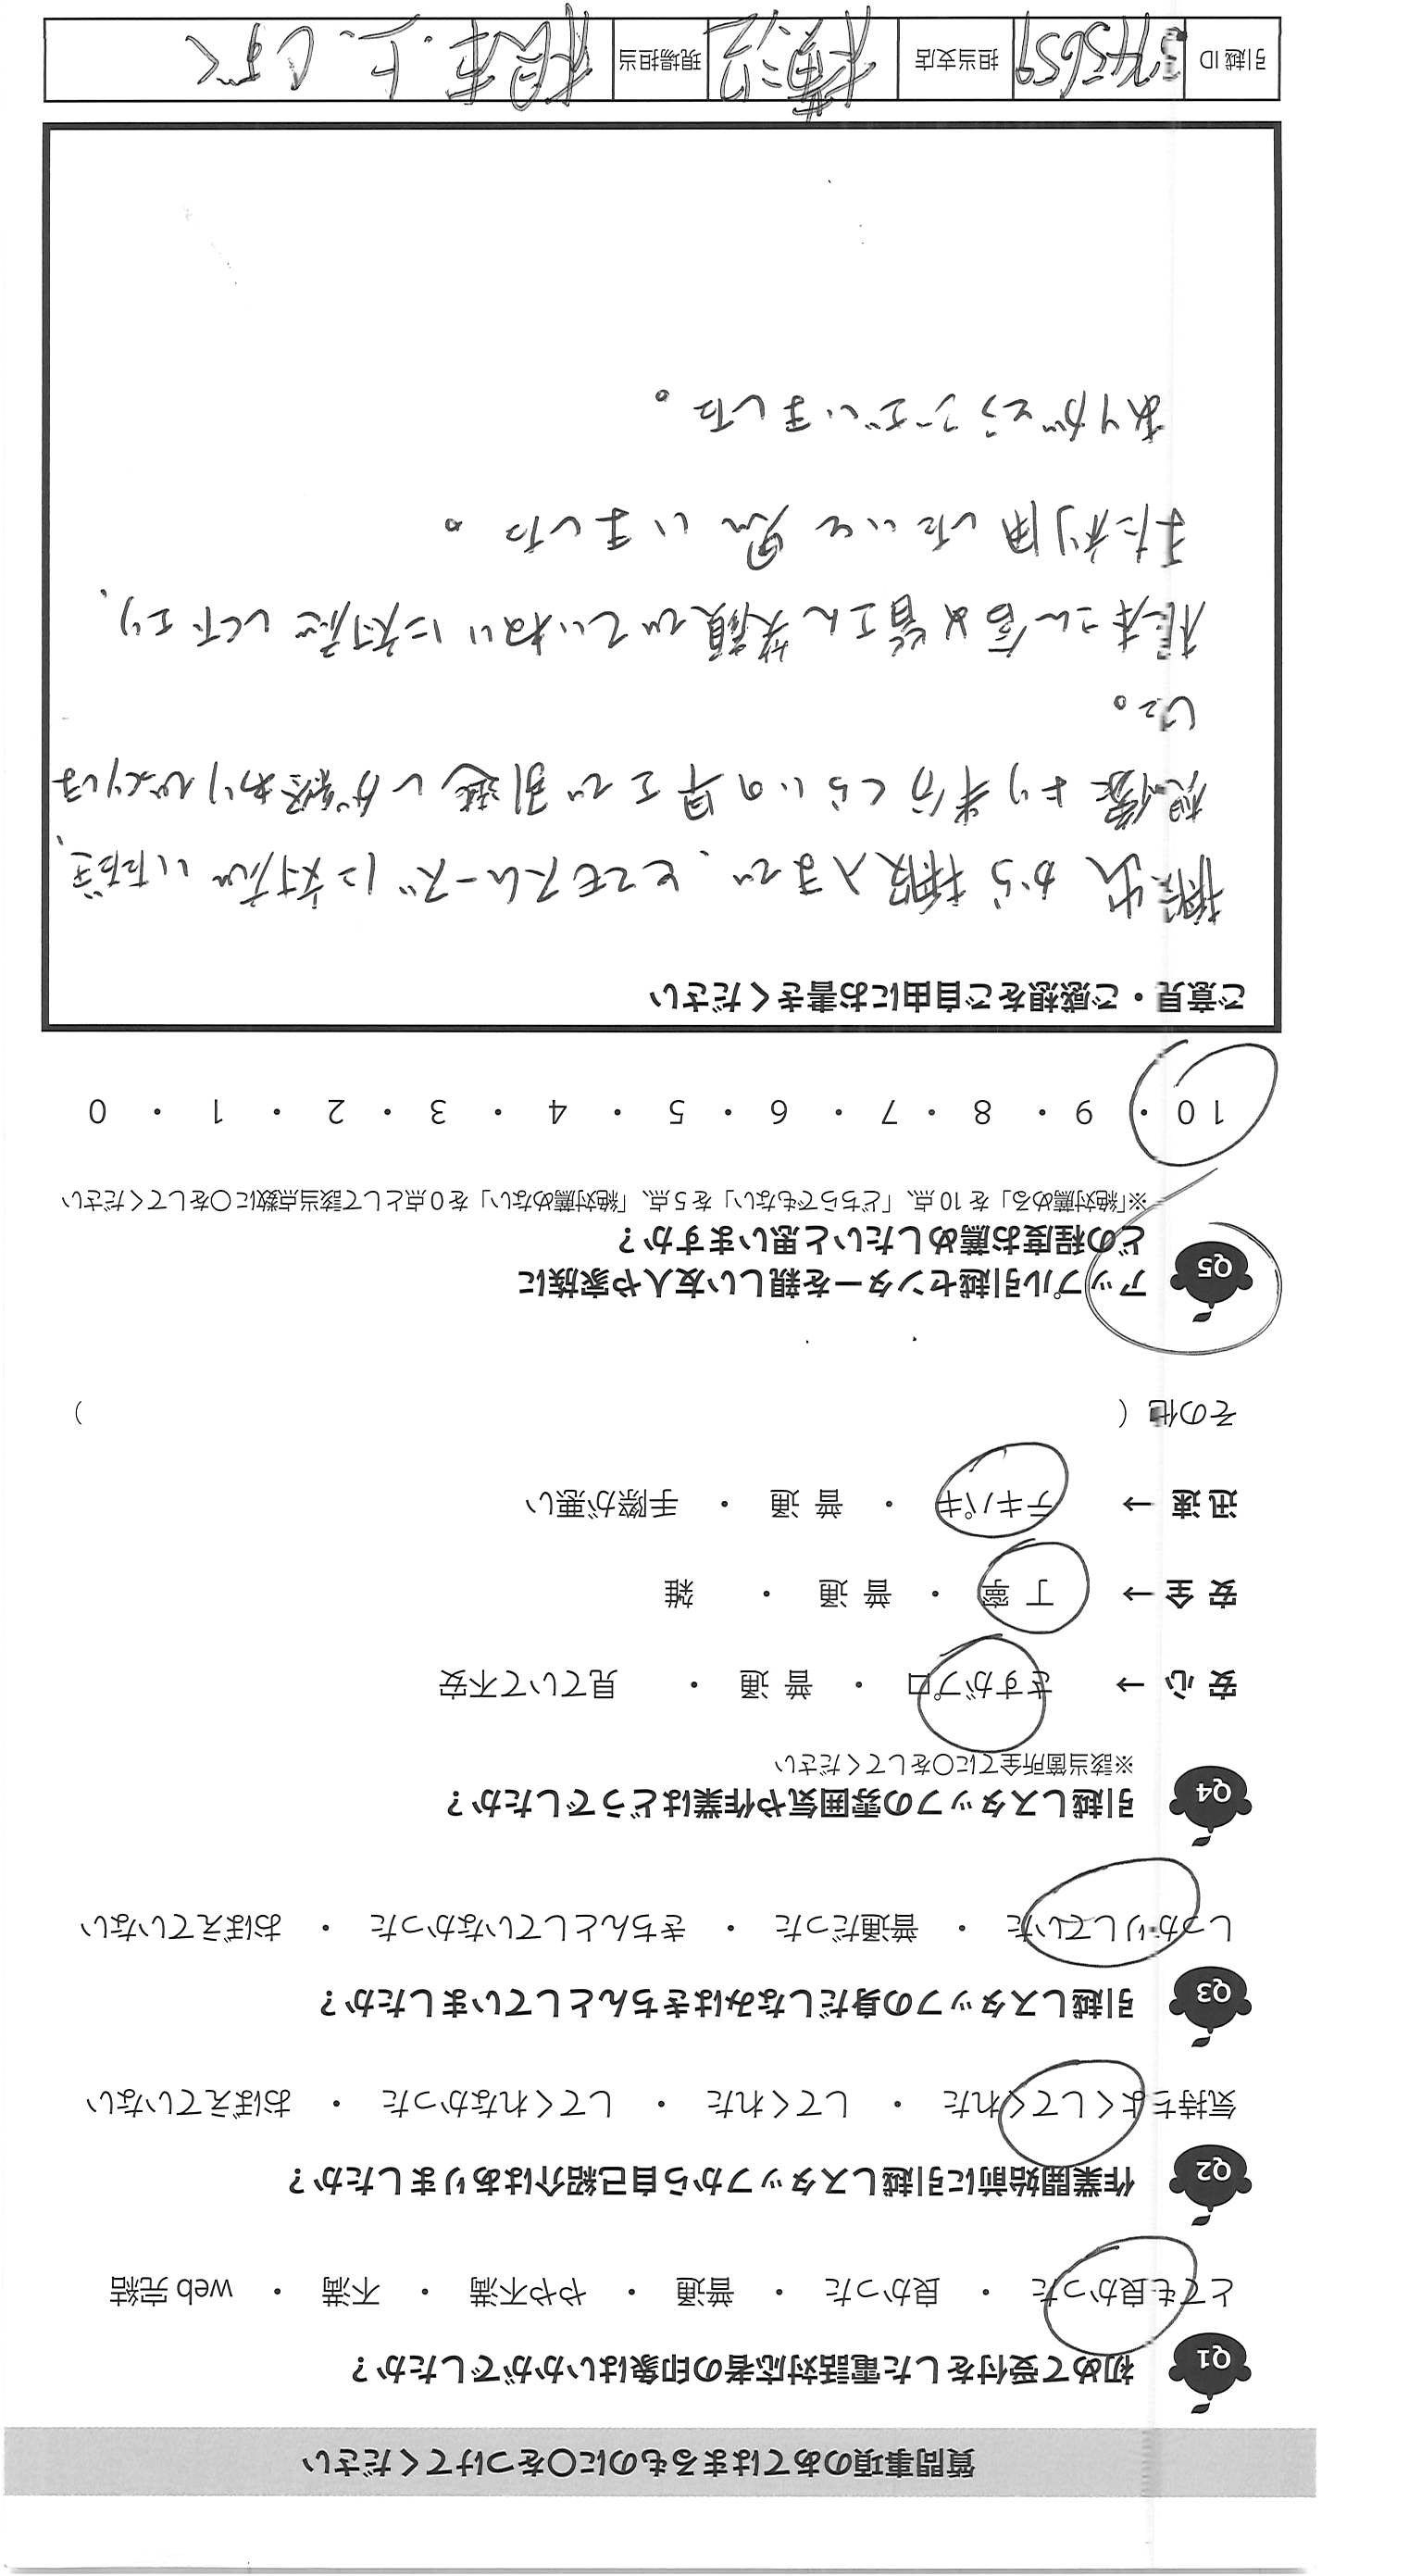 質問事項のあてはまるものに〇をつけてください
Q1 初めて受付をした電話対応者の印象はいかがでしたか？
とても良かった ・ 良かった ・ 普通 ・ やや不満 ・ 不満 ・ web 完結
Q2 作業開始前に引越しスタッフから自己紹介はありましたか？
気持ちよくしてくれた ・ してくれた ・ してくれなかった ・ おぼえていない
Q3 引越しスタッフの身だしなみはきちんとしていましたか？
しっかりしていた ・ 普通だった ・ きちんとしていなかった ・ おぼえていない
Q4 引越しスタッフの雰囲気や作業はどうでしたか？
※該当箇所全てに〇をしてください
安 心 → さすがプロ ・ 普 通 ・ 見ていて不安
安 全 → 丁 寧 ・ 普 通 ・ 雑
迅 速 → テキパキ ・ 普 通 ・ 手際が悪い
その他（ ）
Q5 アップル引越センターを親しい友人や家族に
どの程度お薦めしたいと思いますか？
※「絶対薦める」を 10 点、「どちらでもない」を 5 点、「絶対薦めない」を 0 点として該当点数に〇をしてください
10 ・ 9 ・ 8 ・ 7 ・ 6 ・ 5 ・ 4 ・ 3 ・ 2 ・ 1 ・ 0
ご意見・ご感想をご自由にお書きください
搬出から搬入まで、とてもスムーズに対応いただき、
想像より半分くらいの早さで引越しが終わりびっくりし
した。
根本さん含め皆さん笑顔でていねいに対応して下さり、
また利用したいと思いました。
ありがとうございました。
引越 ID 担当支店 横浜 現場担当 根本